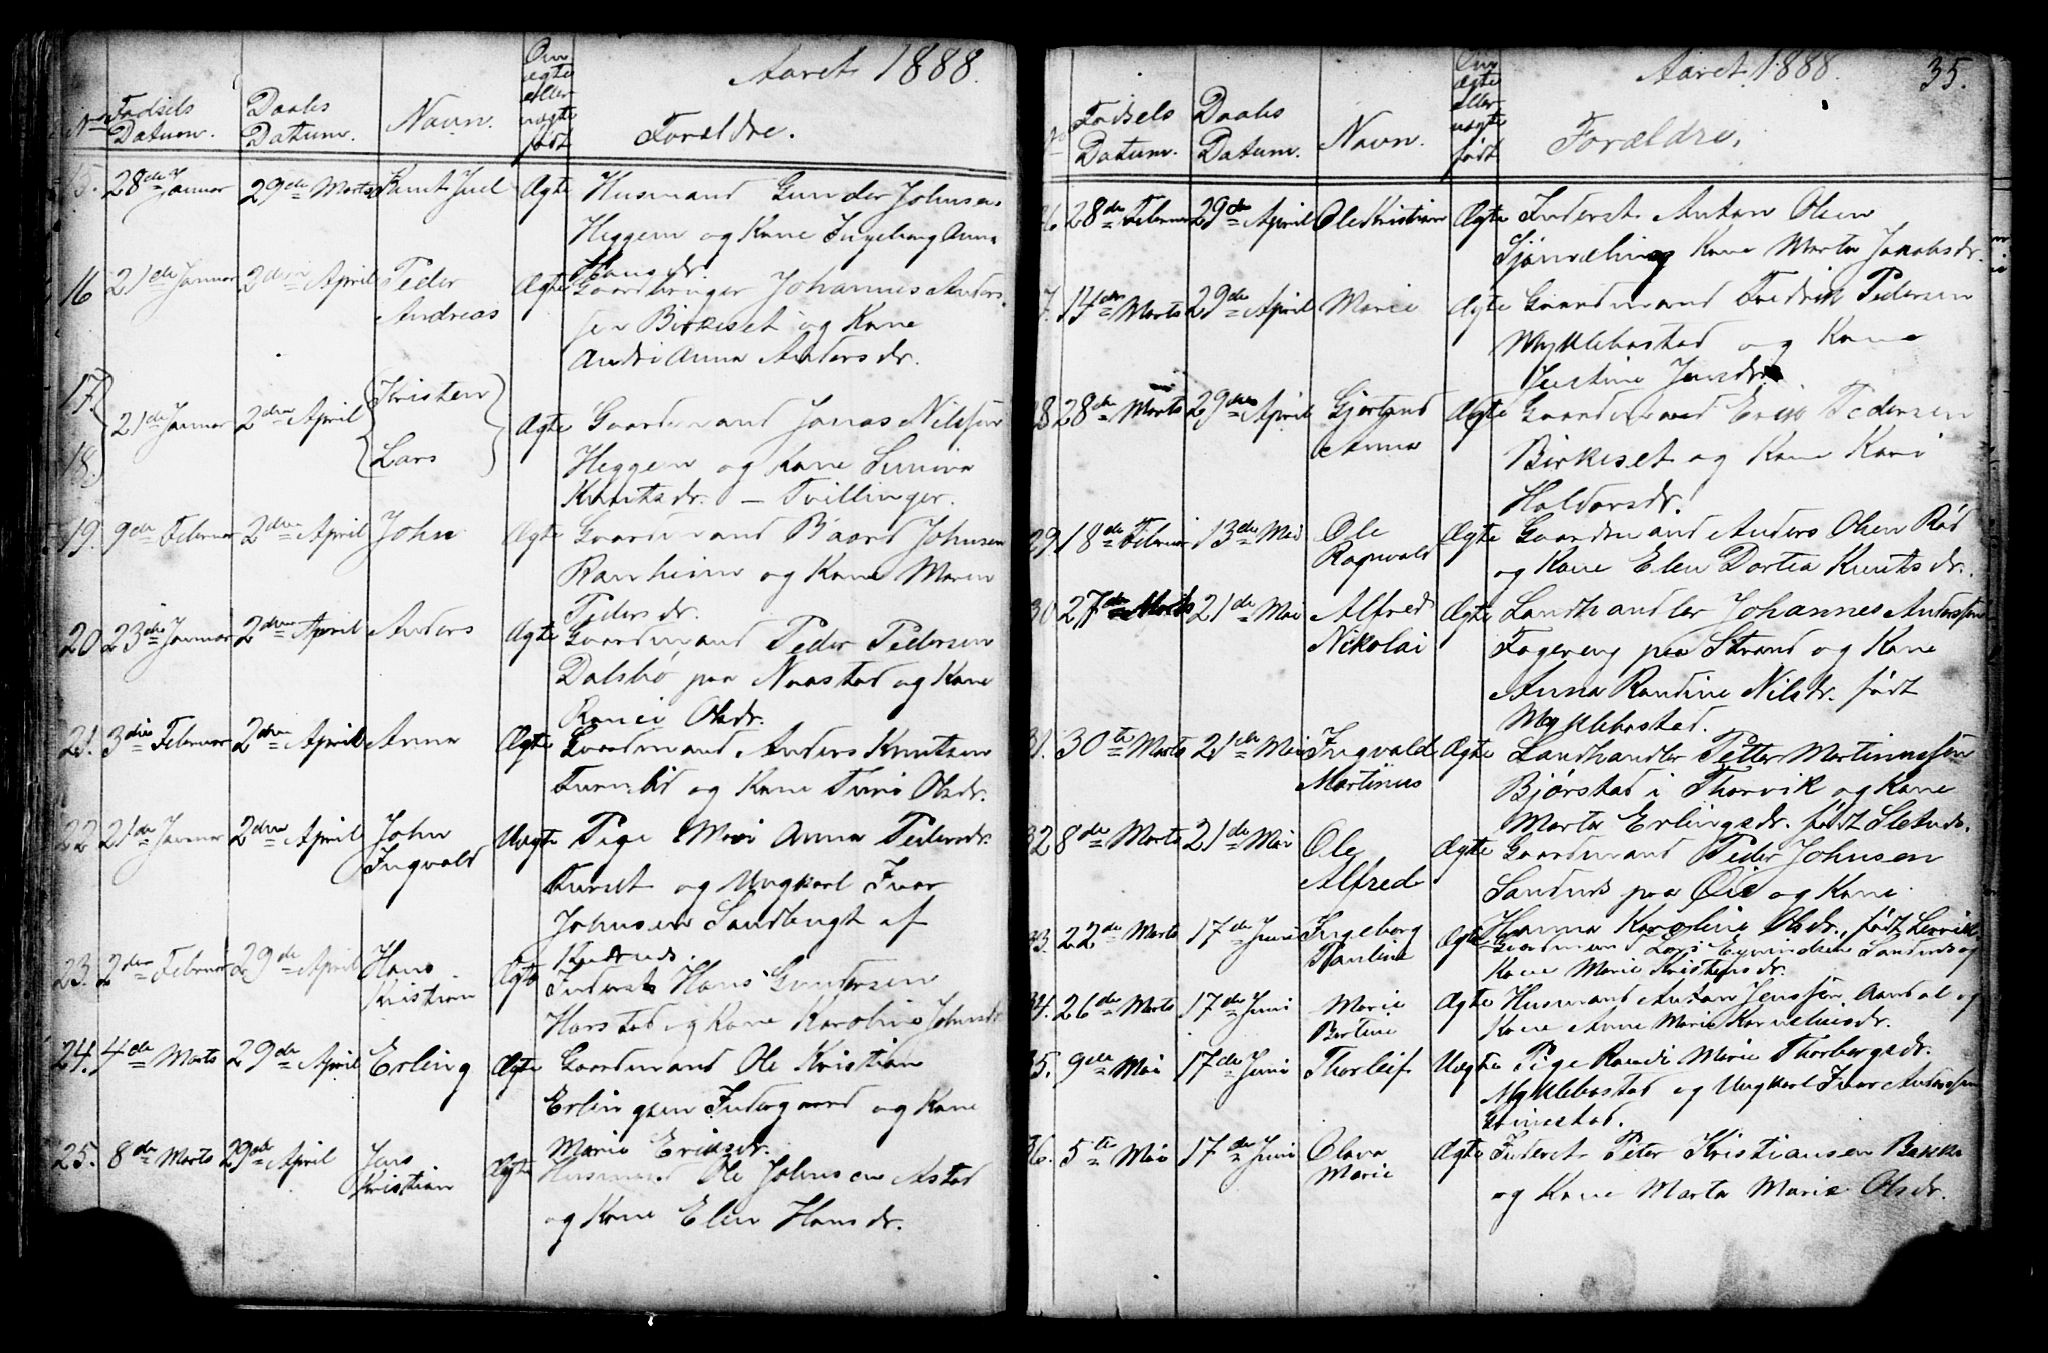 Aaret 1888.
No Fødsels Datum. Daabs Datum. Navn. Om ægte eller uægte født Forældre.
15. 28de Januar 29de Marts Knut Juel Ægte Husmand Gunder Johnsen
Heggem og Kone Ingeborg Anna
Hansdr.
16 21de Januar 2den April Peder Ægte Gaardbruger Johannes Anders-
Andreas sen Birkeset og Kone
Andrianna Andersdr.
17. Kristen
21de Januar 2den April Ægte Gaardmand Jonas Nilssen
18. Lars Heggem og Kone Suniva
Knutsdr. – Tvillinger.
19. 9de Februar 2den April John Ægte Gaardmand Baard Johnsen
Ranheim og Kone Maren
Pedersdr.
20. 23de Januar 2den April Anders Ægte Gaardmand Peder Pedersen
Dalsbø paa Naastad og Kone
Olsdr.
21. 3die Februar 2den April Anna Ægte Gaardmand Anders Knutsen
og Kone Olsdr.
22 21de Januar 2den April John Uægte Pige Mari Anna Pedersdr.
Ingvald og Ungkarl Ivar
Johnsen af
23. 2den Februar 29de April Hans Ægte Inderst Hans Gundersen
Kristian Harstad og Kone Karoline Johnsdr
24. 4de Marts 29de April Erling Ægte Gaardmand Ole Kristian
Erlingsen Indergaard og Kone
Marie Eriksdr.
25. 8de Marts 29de April Jens Ægte Husmand Ole Johnsen
Kristian og Kone Elen Hansdr.
Aaret 1888. 35.
No Fødsels Datum. Daabs Datum. Navn. Om ægte eller uægte født Forældre.
26. 28de Februar 29de April Ole Kristian Ægte Inderst Anton Olsen
og Kone Marta Jakobsdr.
7. 14de Marts 29de April Marie Ægte Gaardmand Fredrik Pedersen
Myklebostad og Kone
Justine Jensdr.
28 28de Marts 29de April Gjertrud Ægte Gaardmand Erik Pedersen
Anna Birkeset og Kone Kari
Haldorsdr.
29. 18de Februar 13de Mai Ole Ægte Gaardmand Anders Olsen Rød
Ragnvald og Kone Elen Dortea Knutsdr.
30 27de Marts 21de Mai Alfred Ægte Landhandler Johannes Anderssen
Nikolai Fagereng paa Strand og Kone
Anna Randine Nilsdr. født
Myklebostad.
31. 30te Marts 21de Mai Ingvald Ægte Landhandler Petter Martinussen
Martinus Bjørstad i Thorvik og Kone
Marta Erlingsdr. født
32 8de Marts 21de Mai Ole Ægte Gaardmand Peder Johnsen
Alfred Sandnes paa og Kone
Hanna Karoline Olsdr., født
33. 22de Marts 17de Juni Ingeborg Ægte Gaardmand Lars Eyvindsen Sandnes og
Pauline Kone Marie Kristensdr.
34. 26de Marts 17de Juni Marie Ægte Husmand Anton Jenssen Aandal og
Bertine Kone Anne Marie Korneliusdr.
35. 9de Mai 17de Juni Thorleif Uægte Pige Randi Marie Thorbergsdr.
Myklebostad og Ungkarl Ivar Anderssen
36. 5te Mai 17de Juni Olava Ægte Inderst Peter Kristiansen Bakke
Marie og Kone Marta Marie Olsdr.